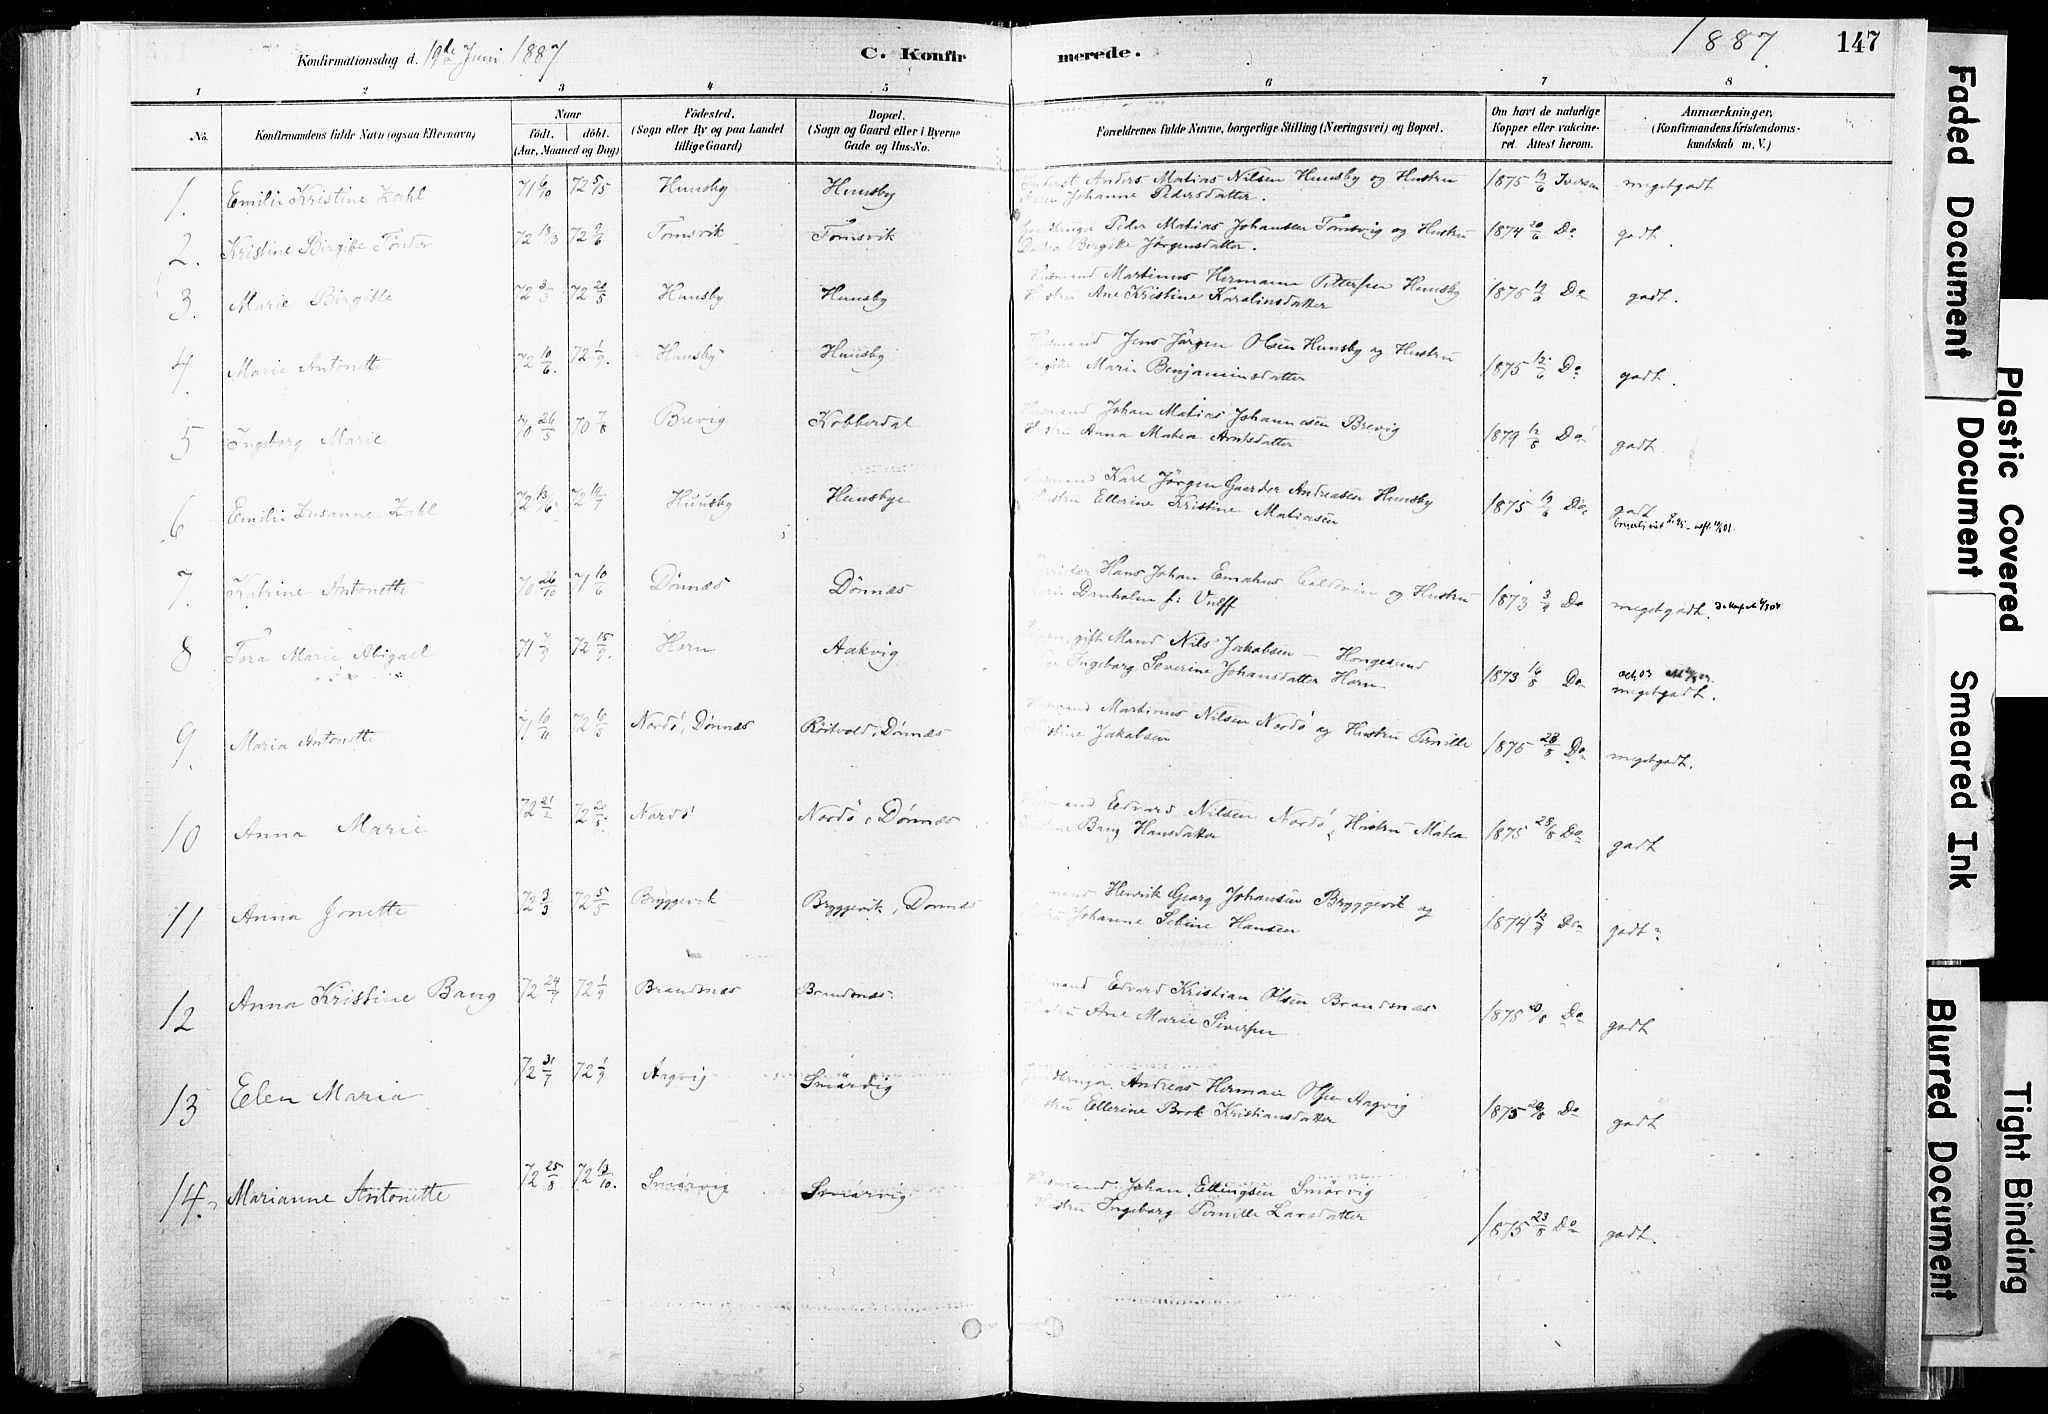 Konfirmationsdag d. 19de Juni 1887
C. Konfir merede.
1887 147
1 2 3 4 5 6 7 8
No. Konfirmandens fulde Navn (ogsaa Efternavn) Naar født. døbt. (Aar, Maaned og Dag) Fødested. (Sogn eller By og paa Landet tillige Gaard) Bopæl. (Sogn og Gaard eller i Byerne Gade og Hus-No. Forældrenes fulde Navne, borgerlige Stilling (Næringsvei) og Bopæl. Om havt de naturlige Kopper eller vakcineret. Attest herom. Anmærkninger. (Konfirmandens Kristendomskundskab m. V.)
1. Emilie Kristine Zahl 71 6/10 72 5/5 Huusby Huusby Anders Matias Nilsen Huusby og Hustru
Johanne Pedersdatter. 1875 19/6 Iversen megetgodt
2. Kristine Birgitte Tønder 72 19/3 72 9/6 Tomsvik Tomsvik Peder Matias Johansen Tomsvig og Hustru
Birgitte Jørgensdatter. 1874 20/6 Do godt.
3. Marie Birgitte 72 3/3 72 20/5 Huusby Huusby Husmand Martinus Hermann Pettersen Huusby
Hustru Ane Kristine Karolinsdatter 1875 19/6 Do godt.
4. Marie Antonette 72 10/6. 72 1/9. Huusby Huusby Husmand Jens Jørgen Olsen Huusby og Hustru
Birgitte Marie Benjaminsdatter 1875 12/6 Do godt.
5 Ingeborg Marie 70 26/5 70 7/8 Brevig Kobberdal Husmand Johan Matias Johannesen Brevig
Hustru Anna Matea Arntsdatter 1879 12/8 Do godt.
6 Emilie Susanne Zahl 72 13/6 72 14/7 Huusby Huusbye Husmand Karl Jørgen Gaarder Andreasen Huusby
Hustru Ellerine Kristine Matiasen 1875 19/6 Do godt
7. Katrine Antonette 70 26/10 71 10/6 Dønnæs Dønnæs Hans Johan Emahus Coldevin og Hustru
Danholm f: Vulff 1873 3/9 Do megetgodt.
8 Tora Marie Abigael 71 7/9 72 15/9. Horn Aakvig gift Mand Nils Jakobsen – Hongesund
Pige Ingeborg Severine Johansdatter Horn 1873 16/8 Do megetgodt.
9. Maria Antonette 71 10/11 72 10/5 Nordø, Dønnæs Røitvold, Dønnæs Husmand Martinus Nilsen Nordø og Hustru Pernille
Kristine Jakobsen 1875 28/8 Do megetgodt.
10 Anna Marie 72 21/2 72 20/5. Nordø Nordø, Dønnæs Husmand Edvard Nilsen Nordø, Hustru Matea
Bang Hansdatter 1875 28/8 Do godt
11 Anna Jonette 72 3/3 72 5/5 Bryggevik Bryggevik, Dønnæs Husmand Henrik Georg Johansen Bryggevik og
Hustru Johanne Sebine Hansen 1874 12/9 Do godt
12 Anna Kristine Bang 72 24/7 72 1/9 Brandsnæs Brandsnæs. Husmand Edvard Kristian Olsen Brandsnæs
Hustru Ane Marie Siversen 1875 20/8 Do godt
13 Elen Maria 72 31/7 72 1/9 Aagvig Smørvig Andreas Herman Olsen Aagvig
Hustru Ellerine Brok Kristiansdatter 1875 20/8 Do godt
14. Marianne Antonette 72 25/8 72 13/10. Smørvig Smørvig Husmand Johan Ellingsen Smørvig
Hustru Ingeborg Pernille Larsdatter 1875 23/8 Do godt.
Faded Document
Plastic Covered Document
Smeared Ink
Blurred Document
Tight Binding